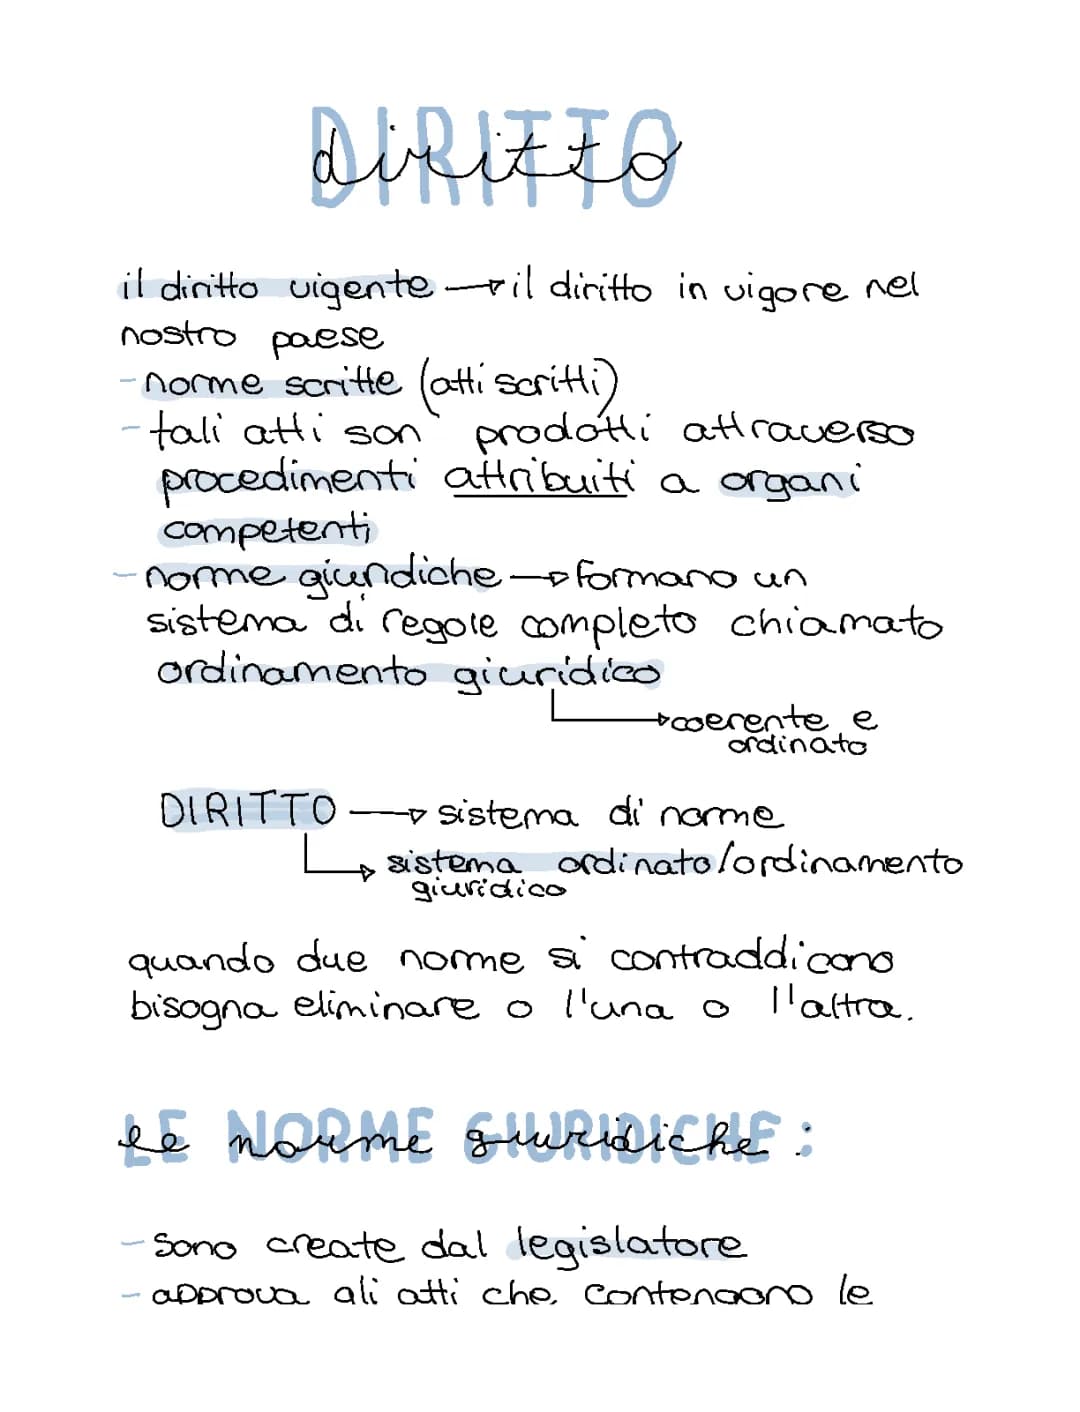 DIRITTO
diritto
il diritto vigente → il diritto in vigore nel
nostro paese
- norme scritte (atti scritti)
- tali atti son prodotti attraverso
procedimenti attribuiti a organi
competenti
- norme giuridiche → formano un
sistema di regole completo chiamato
ordinamento giuridico
→ coerente e
ordinato
DIRITTO → sistema di norme
→ sistema ordinato/ordinamento
giuridico
quando due norme si contraddicono
bisogna eliminare o l'una o l'altra.
LE NORME GIURIDICHE:
le norme giuridiche:
- sono create dal legislatore
- approva gli atti che contengono le